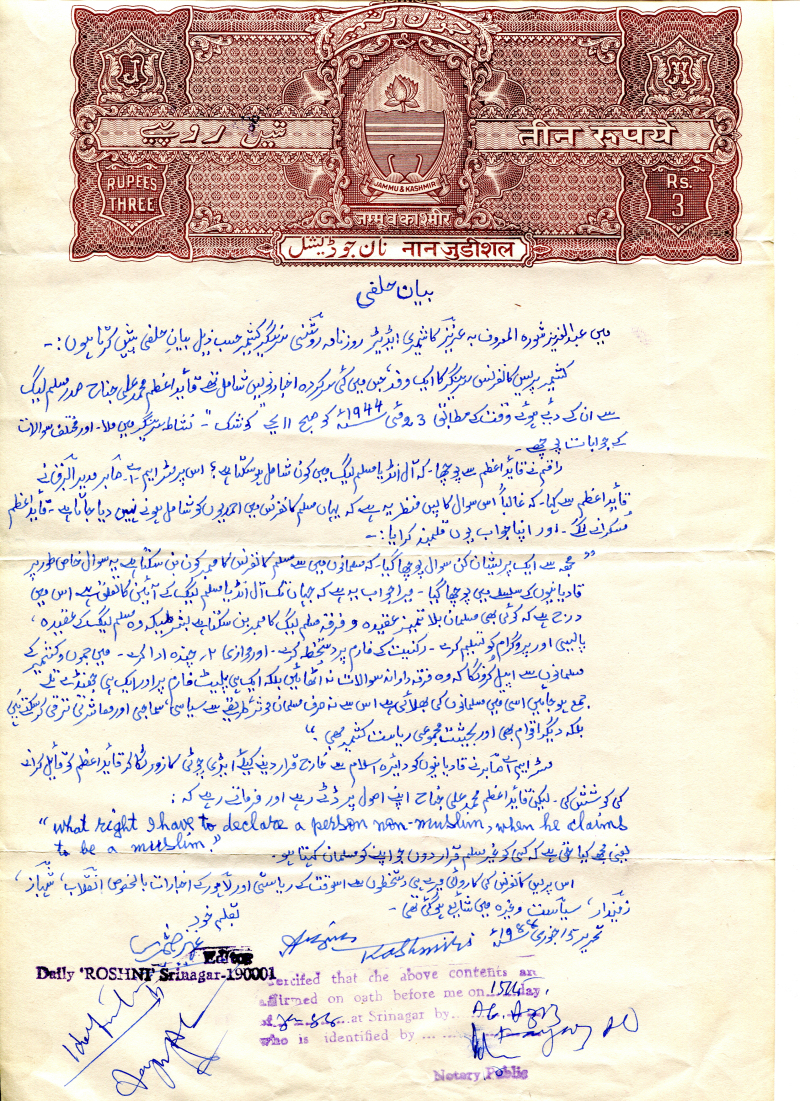 جموں کشمیر
J
M
تین روپیے
तीन रूपये
RUPEES THREE
Rs. 3
JAMMU & KASHMIR
जम्मू व काश्मीर
نان جوڈیشل नान जुडीशल
بیان حلفی
میں عبدالعزیز شورہ المعروف بہ عزیز کاشمیری ایڈیٹر روزنامہ روشنی سرینگر کشمیر حسب ذیل بیانِ حلفی پیش کرتا ہوں:-
کشمیر پریس کانفرنس سرینگر کا ایک وفد، جس میں کئی سرکردہ اخبار نویس شامل تھے قائداعظم محمد علی جناح صدر مسلم لیگ
سے ان کے دیئے ہوئے وقت کے مطابق 3 مئی 1944ء کو صبح 11 بجے "کوشک" نشاط سرینگر میں ملا۔ اور مختلف سوالات
کے جوابات پوچھے۔
راقم نے قائداعظم سے پوچھا۔ کہ آل انڈیا مسلم لیگ میں کون شامل ہو سکتا ہے؟ اس پر مسٹر ایم۔اے۔ صابر مدیر البرق نے
قائداعظم سے کہا۔ کہ غالباً اس سوال کا پس منظر یہ ہے کہ یہاں مسلم کانفرنس میں احمدیوں کو شامل ہونے نہیں دیا جاتا ہے۔ قائداعظم
مُسکرانے لگے۔ اور اپنا جواب یوں قلمبند کرایا:-
"مجھ سے ایک پریشان کن سوال پوچھا گیا۔ کہ مسلمانوں میں سے مسلم کانفرنس کا ممبر کون بن سکتا ہے یہ سوال خاص طور پر
قادیانیوں کے سلسلے میں پوچھا گیا۔ میرا جواب یہ ہے کہ جہاں تک آل انڈیا مسلم لیگ کے آئین کا تعلق ہے اس میں
درج ہے کہ کوئی بھی مسلمان بلا تمیز عقیدہ و فرقہ مسلم لیگ کا ممبر بن سکتا ہے بشرطیکہ وہ مسلم لیگ کے عقیدہ،
پالیسی اور پروگرام کو تسلیم کرے۔ رکنیت کے فارم پر دستخط کرے۔ اور چندہ ادا کرے۔ میں جموں و کشمیر کے
مسلمانوں سے اپیل کرونگا کہ وہ فرقہ وارانہ سوالات نہ اٹھائیں بلکہ ایک ہی پلیٹ فارم پر اور ایک ہی جھنڈے تلے
جمع ہو جائیں اسی میں مسلمانوں کی بھلائی ہے اس سے نہ صرف مسلمان موثر طریقے سے سیاسی، سماجی اور معاشرتی ترقی کر سکتے ہیں
بلکہ دیگر اقوام بھی اور بحیثیت مجموعی ریاست کشمیر بھی۔"
مسٹر ایم اے صابر نے قادیانیوں کو دائرہ اسلام سے خارج قرار دینے کیلئے ایڑی چوٹی کا زور لگا کر قائداعظم کو قائل کرانے
کی کوشش کی۔ لیکن قائداعظم محمد علی جناح اپنے اصول پر ڈٹے رہے اور فرماتے رہے کہ:
"what right I have to declare a person non-muslim, when he claims
to be a muslim."
یعنی مجھے کیا حق ہے کہ کسی کو غیر مسلم قرار دوں جو اپنے کو مسلمان کہتا ہو۔
اس پریس کانفرنس کی کاروائی میرے ہی دستخطوں سے اسوقت کے ریاستی اور لاہور کے اخبارات بالخصوص انقلاب، شہباز،
زمیندار، سیاست وغیرہ میں شایع ہو گئی تھی۔
تحریر 15 جنوری 1988ء
بقلم خود
عزیز کاشمیری
Aziz Kashmiri
Editor
Daily 'ROSHNI' Srinagar-190001
Cercifed that the above contents are
affirmed on oath before me on 15th day
of Jan 88 at Srinagar by Ab. Aziz
who is identified by
Notary Public